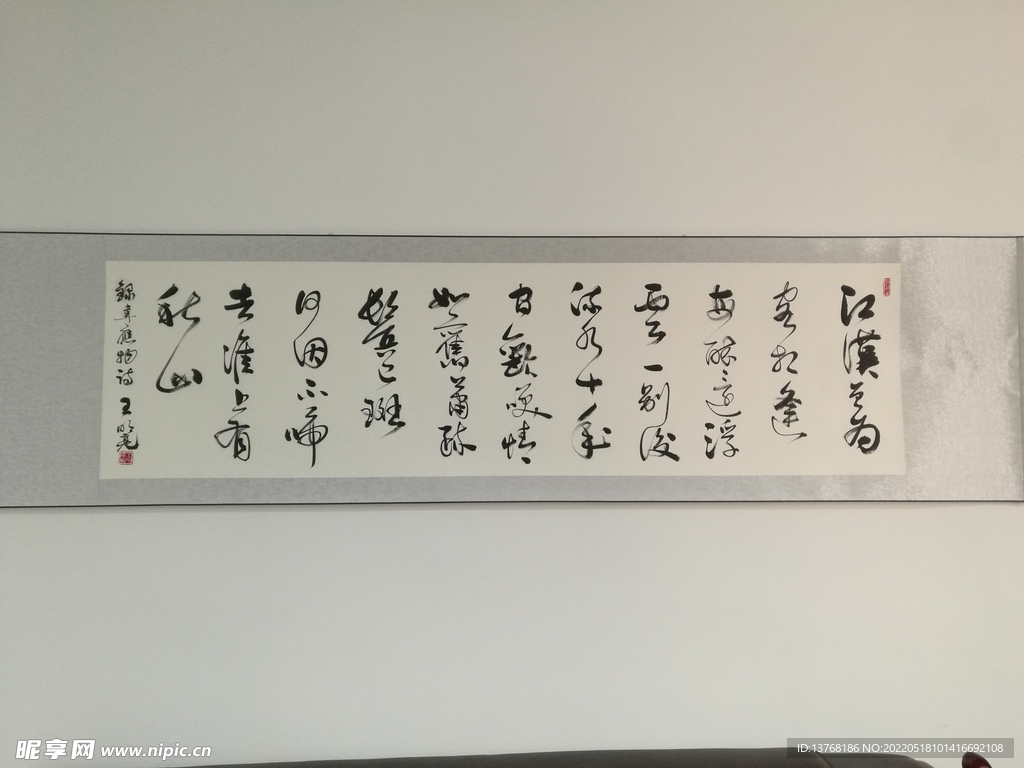 江漢曾为
客相逢
每醉還浮
雲一别後
流水十年
间歡咲情
如舊蕭疏
鬢已斑
何因不歸
去淮上有
秋山
錄韋應物詩 王明亮
昵享网 www.nipic.cn
ID:13768186 NO:20220518101416692108